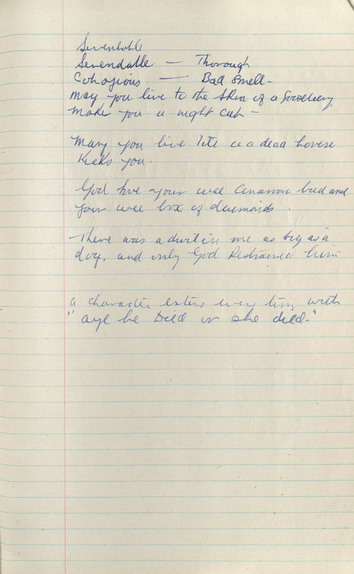 Sevendable
Sevendable — Thorough
Cohogious — Bad Smell -
May you live to the skin of a
make you a night cap -
May you live till a dead horse
kicks you.
God love your wee cinnamon bud and
your wee box of diamonds
There was a divil in me as big as a
dog, and only God restrained him
a character enters every time with
"aye he died or she died."